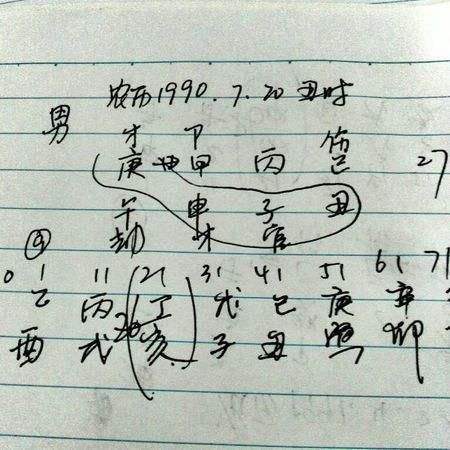 农历1990.7.20 丑时
男
才 卩 伤
庚 甲 丙 己 27
午 申 子 丑
劫 才 官
0 1 11 21 31 41 51 61 71
乙 丙 丁 戊 己 庚 辛
酉 戌 26 亥 子 丑 寅 卯